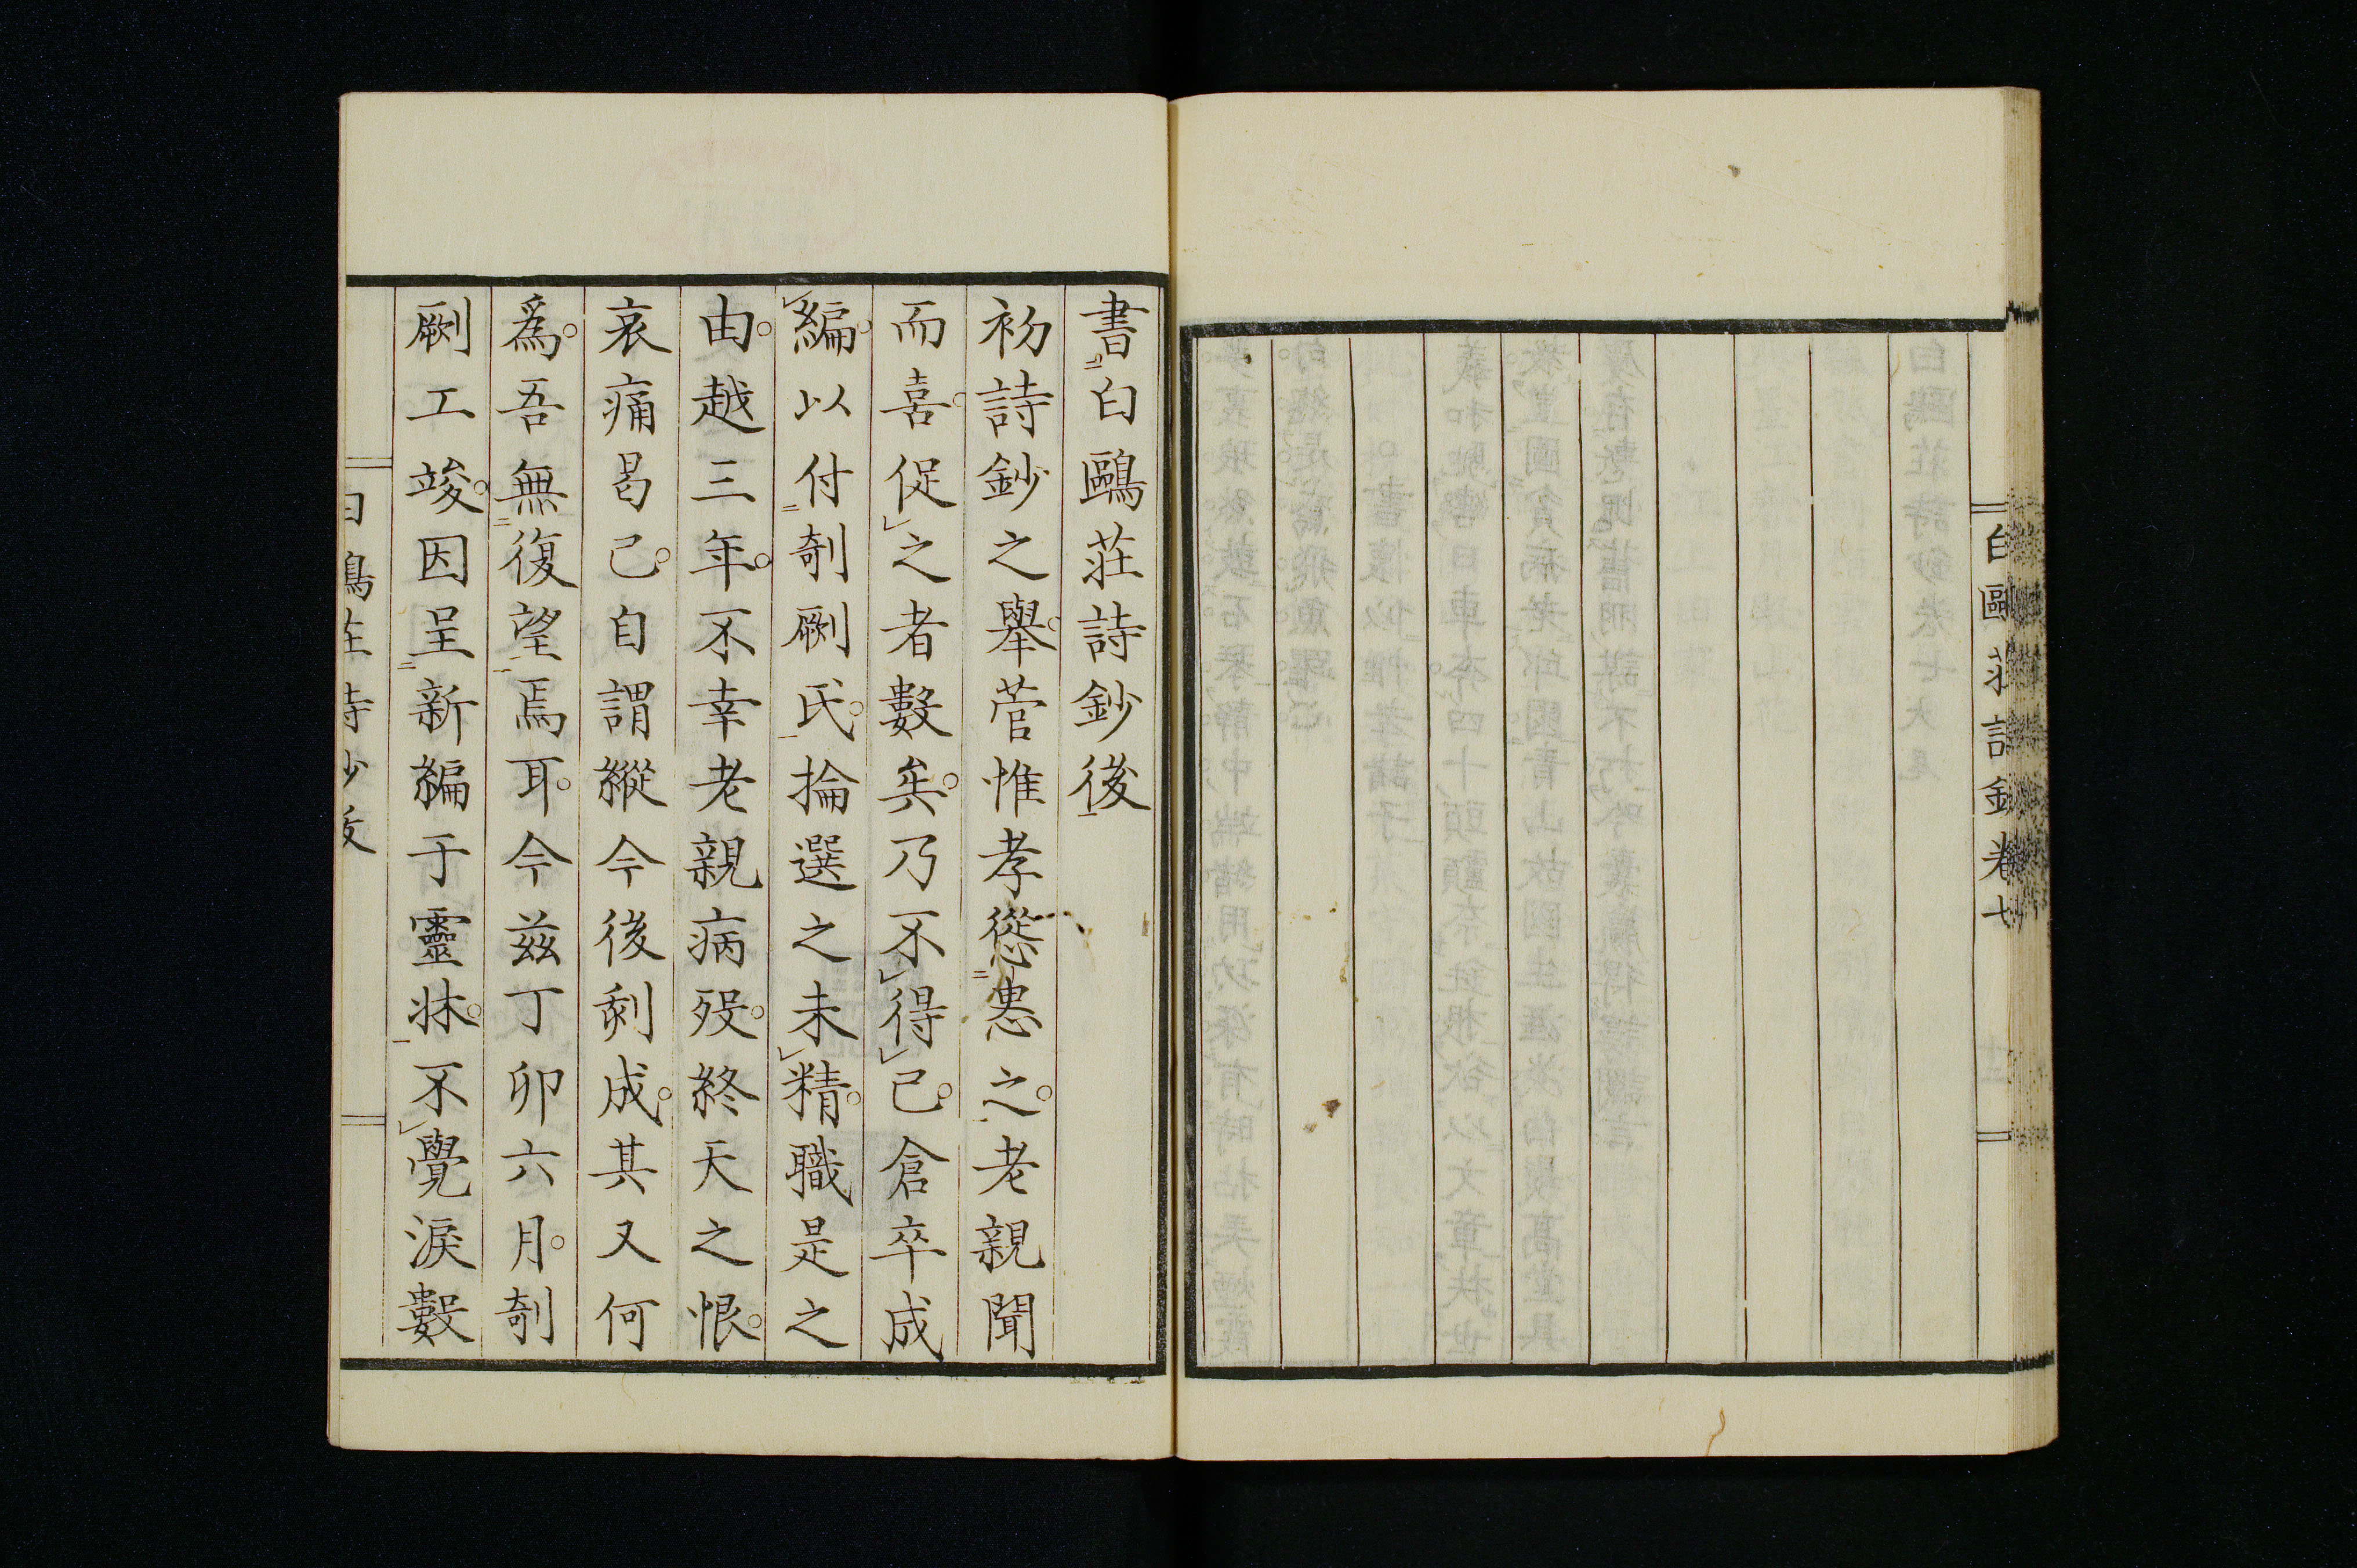 白鷗莊詩鈔卷七
書白鷗莊詩鈔後
初詩鈔之舉。菅惟孝慫慂之。老親聞
而喜。促之者數矣。乃不得已。倉卒成
編。以付剞劂氏。掄選之未精。職是之
由。越三年。不幸老親病歿。終天之恨。
哀痛曷已。自謂縱今後剞成。其又何
爲。吾無復望焉耳。今茲丁卯六月。剞
劂工竣。因呈新編于靈牀。不覺淚數